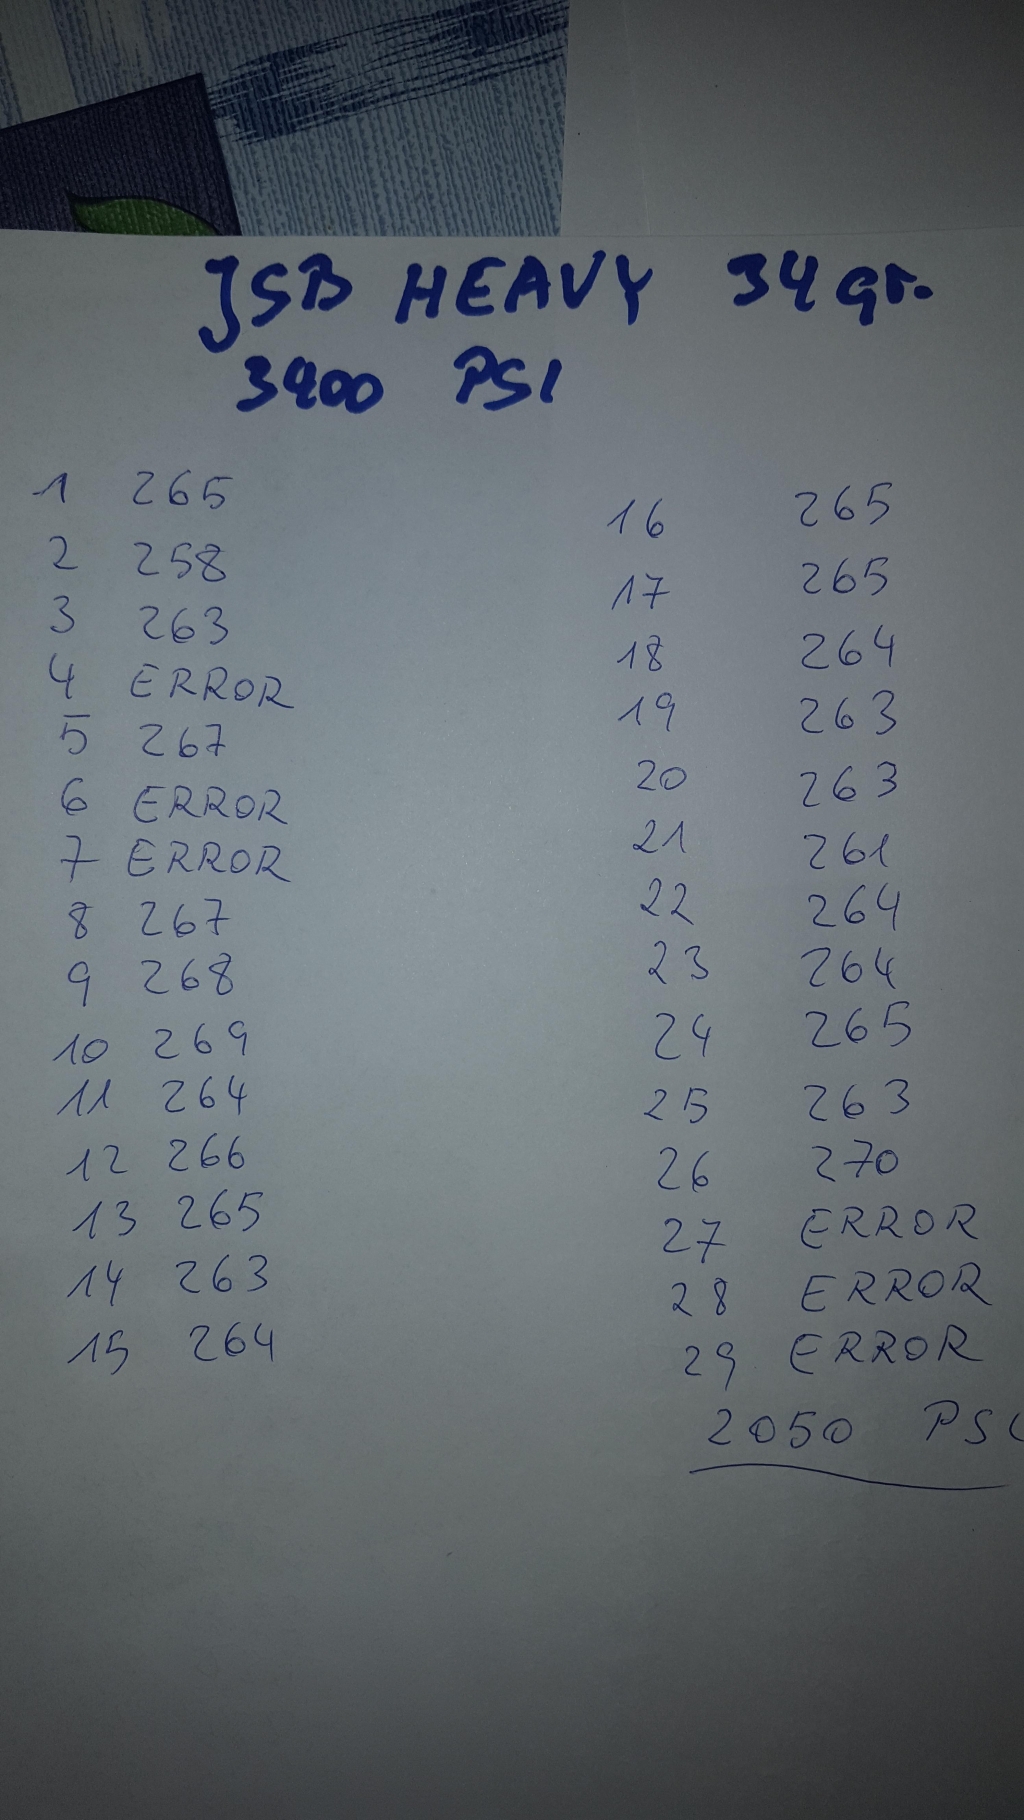 JSB HEAVY 34gr.
3400 PSI
1 265
2 258
3 263
4 ERROR
5 267
6 ERROR
7 ERROR
8 267
9 268
10 269
11 264
12 266
13 265
14 263
15 264
16 265
17 265
18 264
19 263
20 263
21 261
22 264
23 264
24 265
25 263
26 270
27 ERROR
28 ERROR
29 ERROR
2050 PSI